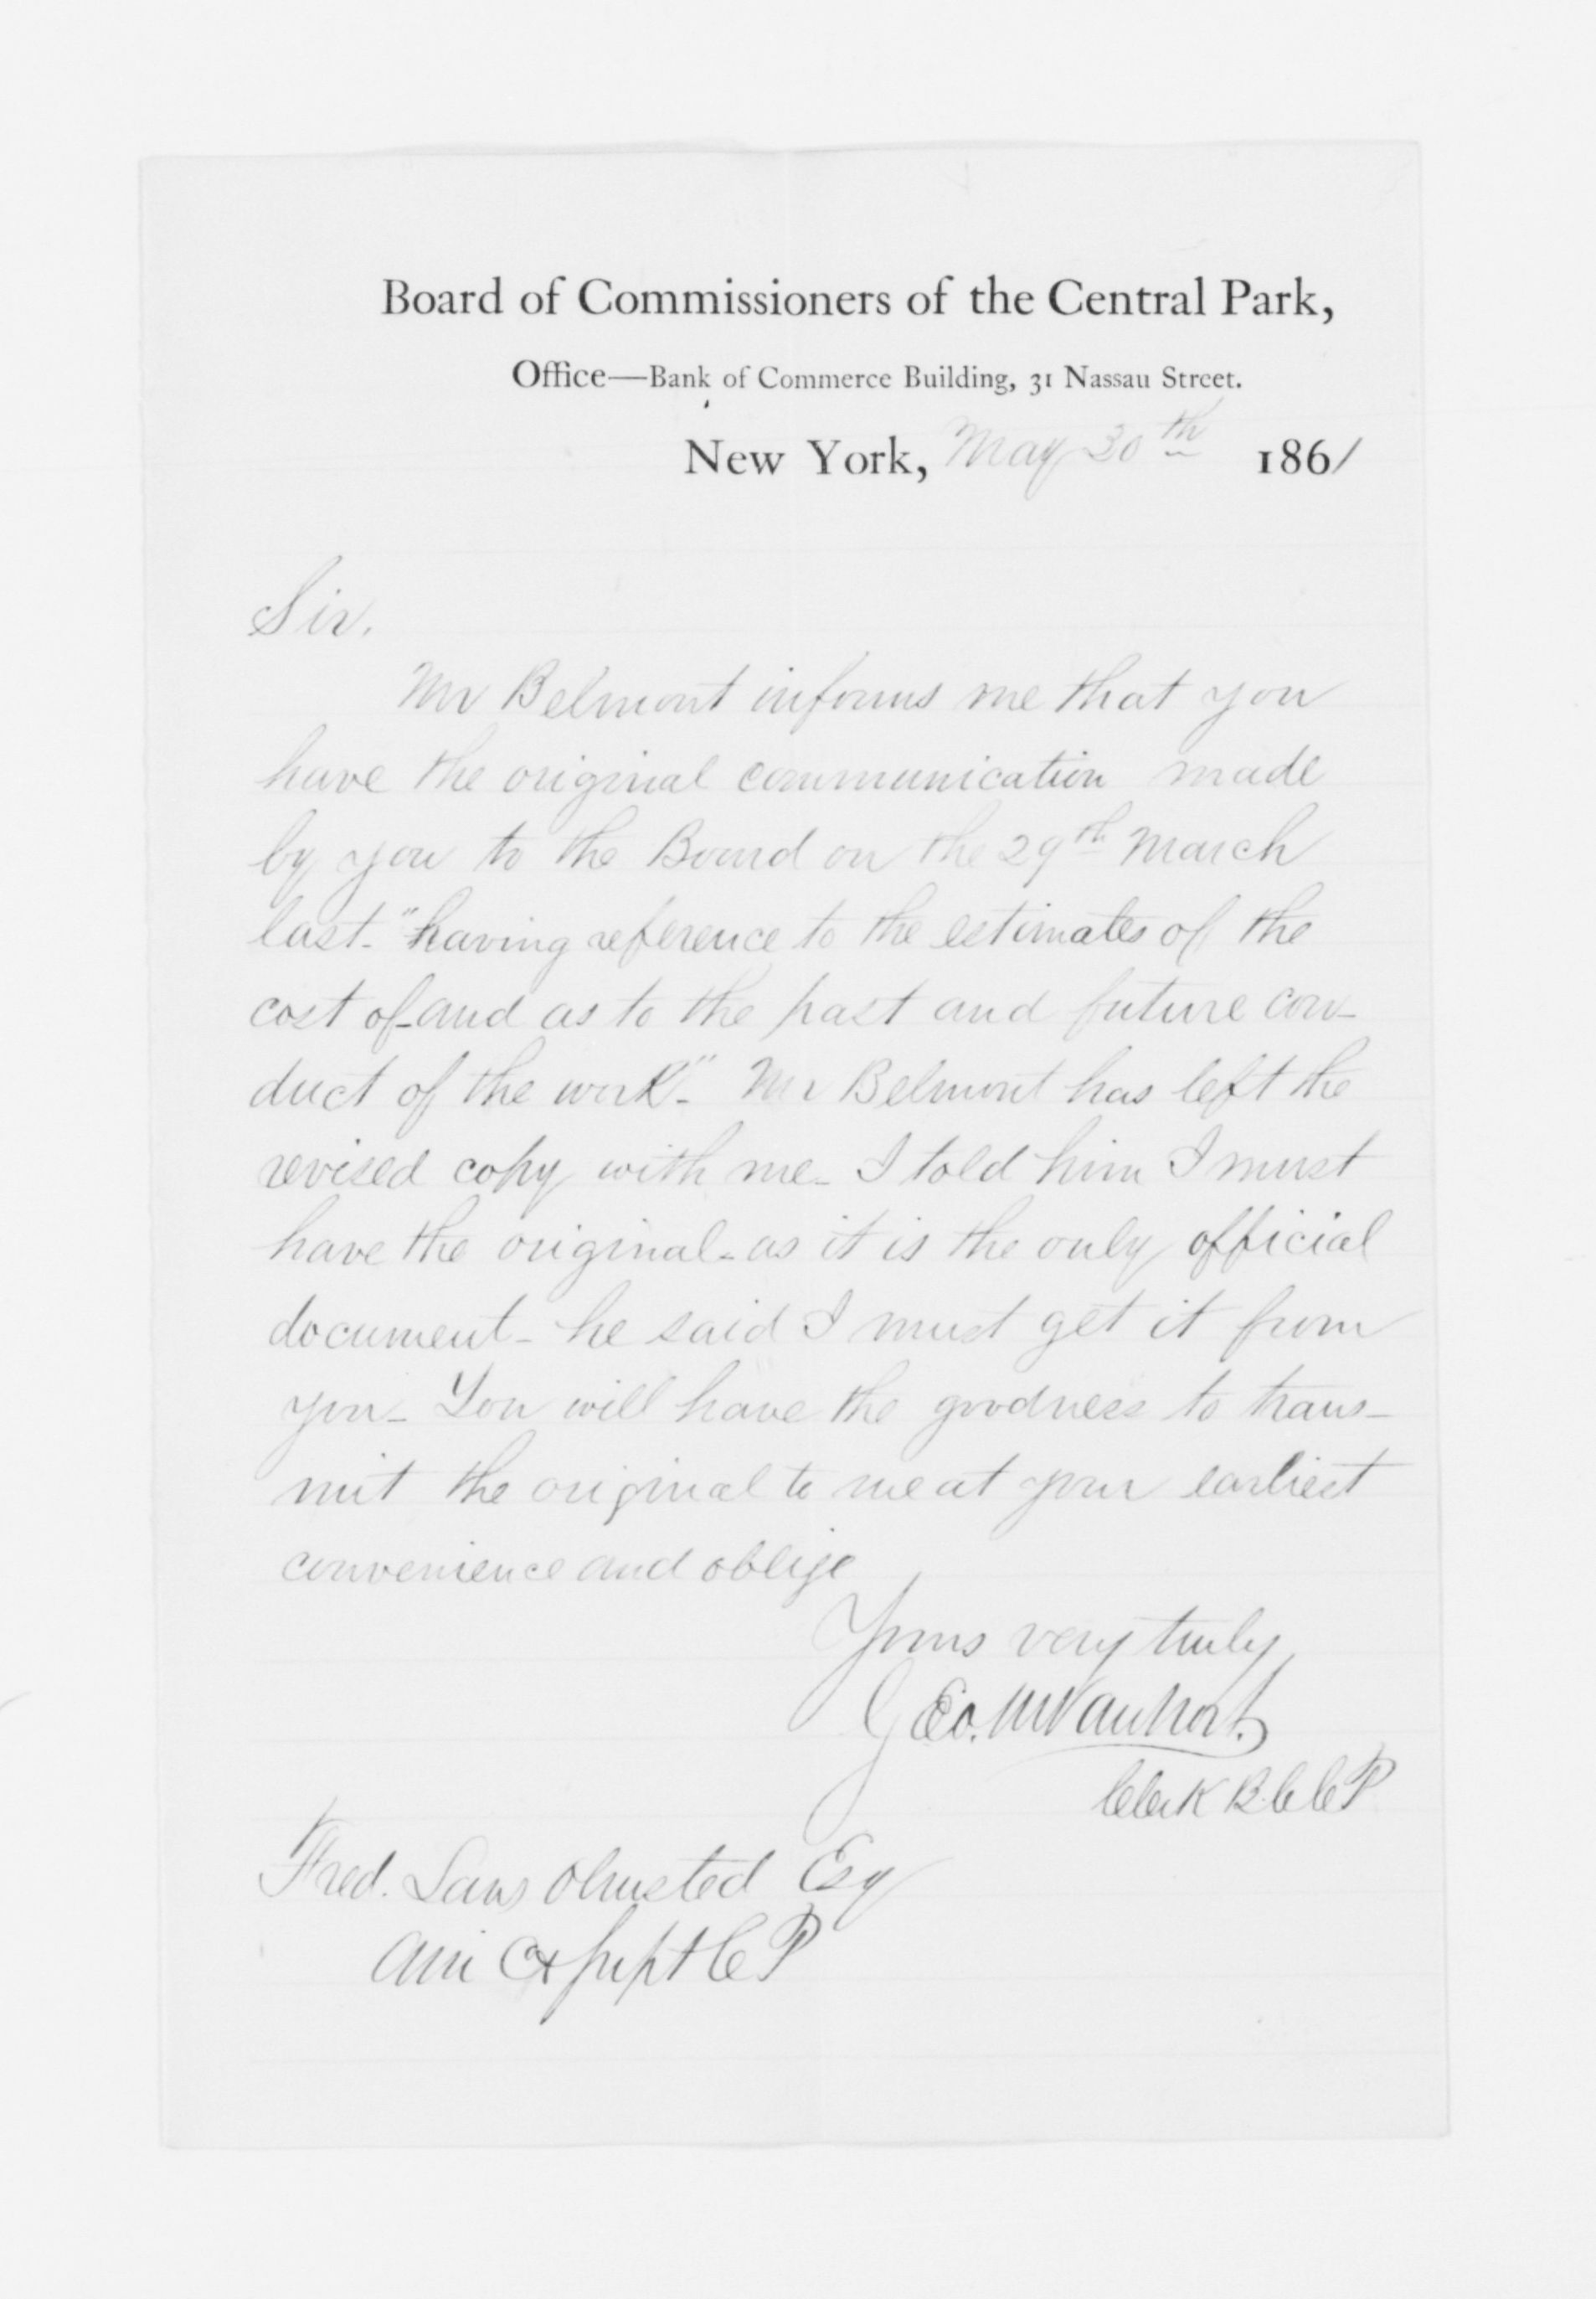 Board of Commissioners of the Central Park,
Office—Bank of Commerce Building, 31 Nassau Street.
New York, May 30th 1861
Sir.
Mr Belmont informs me that you
have the original communication made
by you to the Board on the 29th March
last- "having reference to the estimates of the
cost of-and as to the past and future con-
duct of the work"- Mr Belmont has left the
revised copy with me- I told him I must
have the original- as it is the only official
document- he said I must get it from
you- You will have the goodness to trans-
mit the original to me at your earliest
convenience and oblige
Yours very truly
Geo. M Van Nort.
Clerk B.C C P
Fred. Law Olmsted Esq
Supt C P